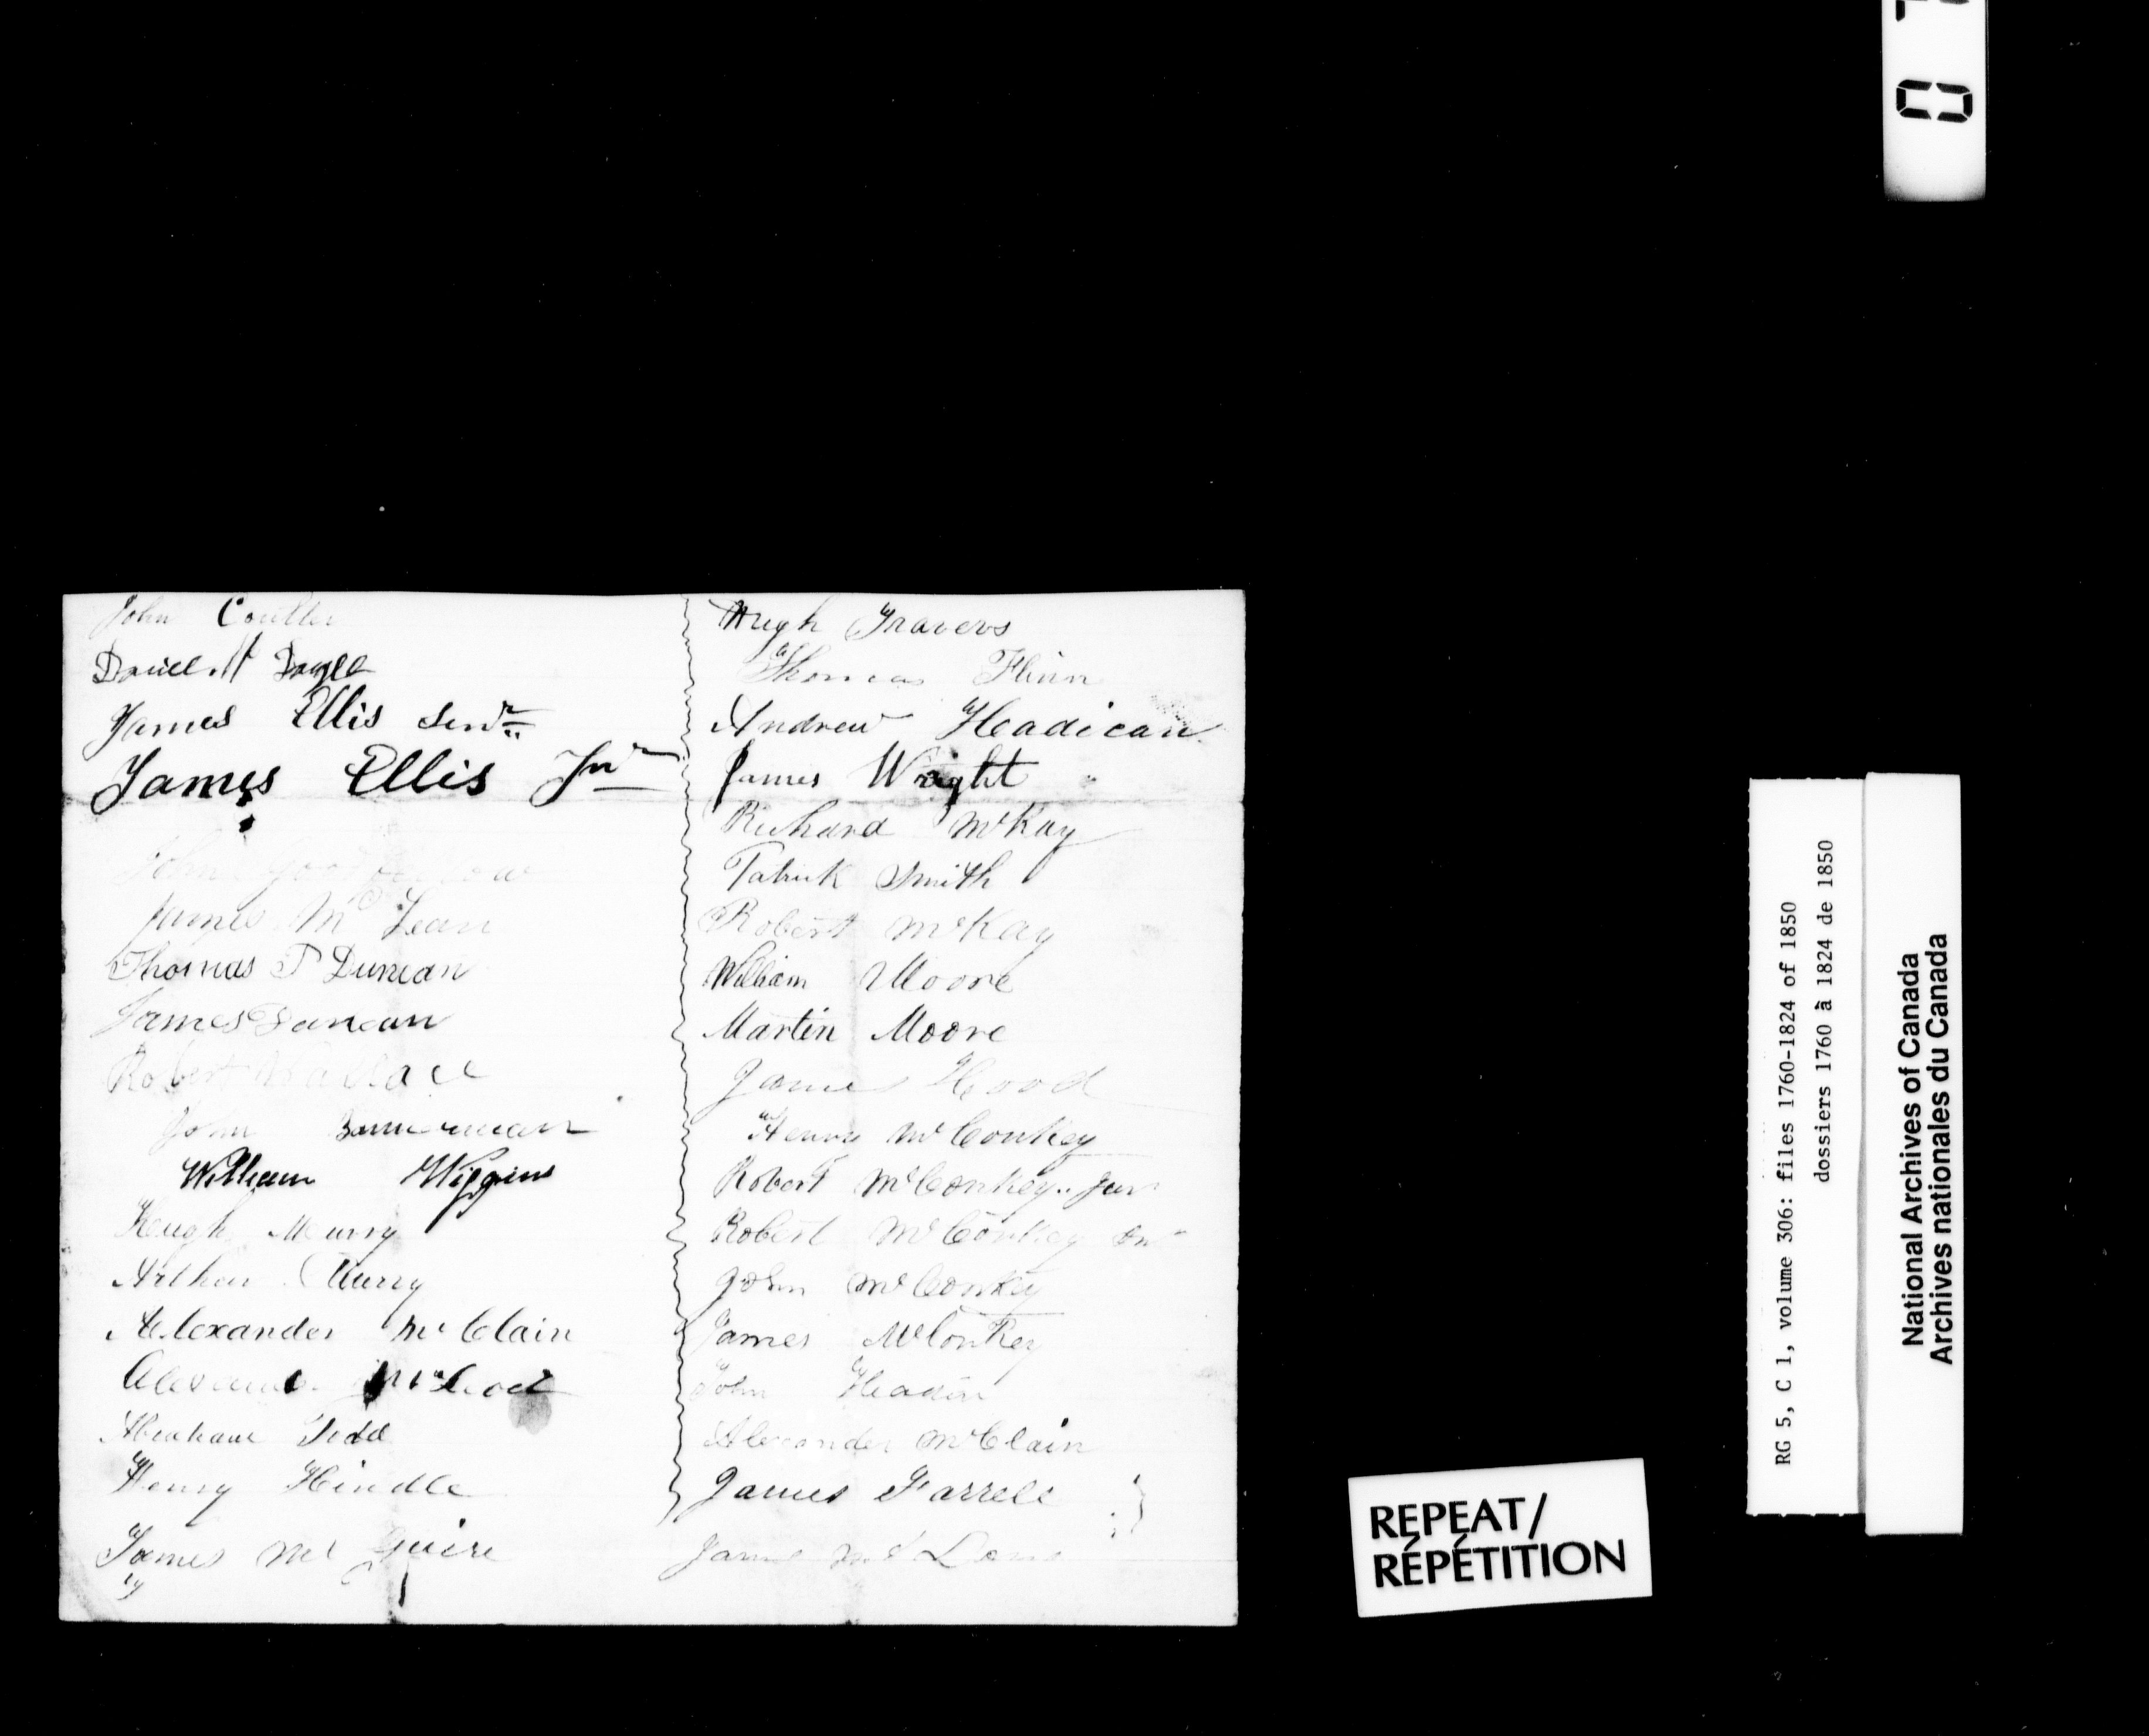 John Coulter
Daniel Doyle
James Ellis Senr
James Ellis Jnr
John
James Mc Lean
Thomas P Duncan
James Duncan
Robert Wallace
John
William Wiggins
Hugh Murry
Arthur Murry
Alexander Mc Clain
Mc Leod
Abraham Todd
Henry Hindle
James Mc Guire
19
Hugh Travers
Thomas Flinn
Andrew Headican
James Wright
Richard McKay
Patrick Smith
Robert McKay
William Moore
Martin Moore
James Hood
Henry McConkey
Robert McConkey Jun
Robert McConkey Snr
John McConkey
James McConkey
John
Alexander McClain
James Farrell
James
REPEAT/
RÉPÉTITION
RG 5, C 1, volume 306: files 1760-1824 of 1850
dossiers 1760 à 1824 de 1850
National Archives of Canada
Archives nationales du Canada
0